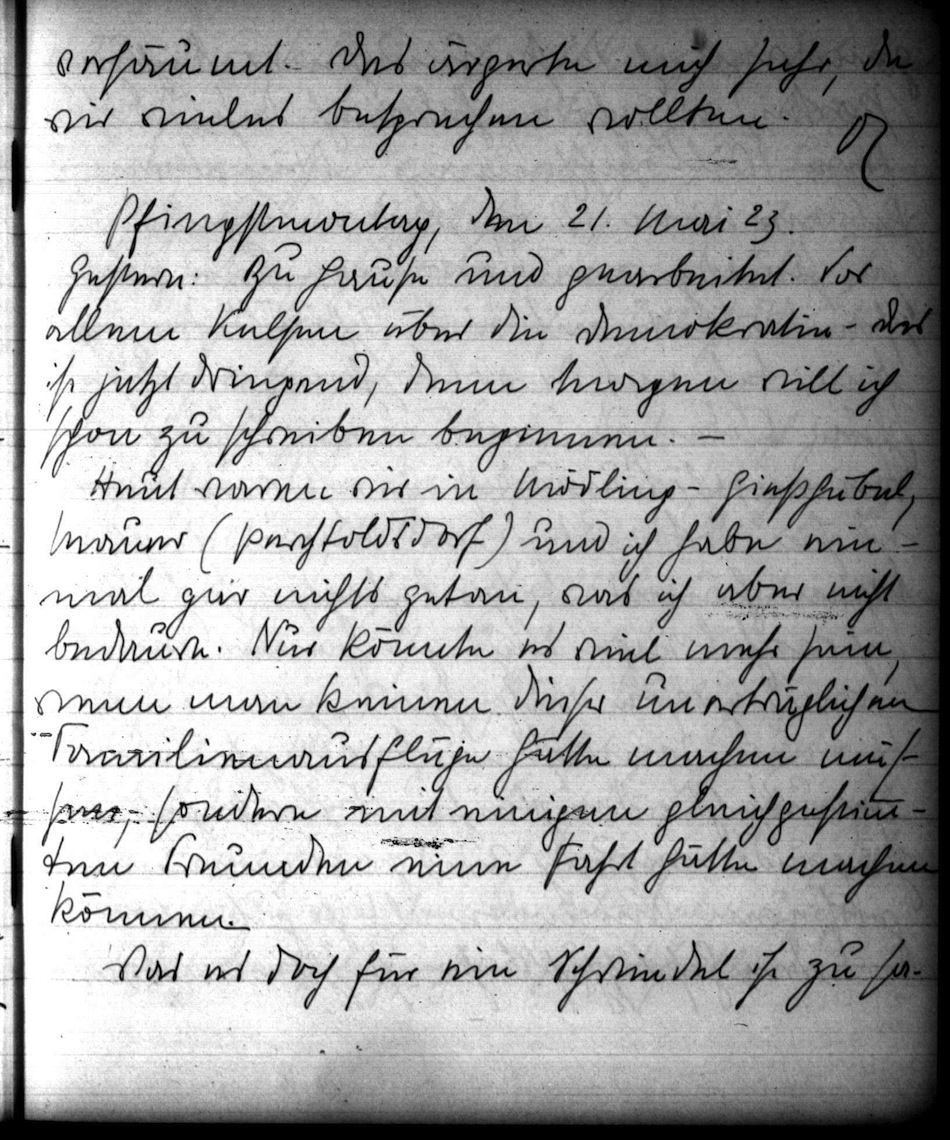 versäumt. Das ärgerte mich sehr, da
wir vieles besprechen wollten.
Pfingstmontag, den 21. Mai 23.
Gestern: Zu Hause und gearbeitet. Vor
allem Kelsen über die Demokratie - das
ist jetzt dringend, denn morgen will ich
schon zu schreiben beginnen. —
Heut waren wir in Mödling - Gießhübel,
Mauer (Perchtoldsdorf) und ich habe ein-
mal gar nichts getan, was ich aber nicht
bedaure. Nur könnte es viel mehr sein,
wenn man keinen dieser unerträglichen
Familienausflüge hätte machen müs-
sen, sondern mit einigen gleichgestimm-
ten Freunden eine Fahrt hätte machen
können.
Was es doch für ein Schwindel ist zu sa-